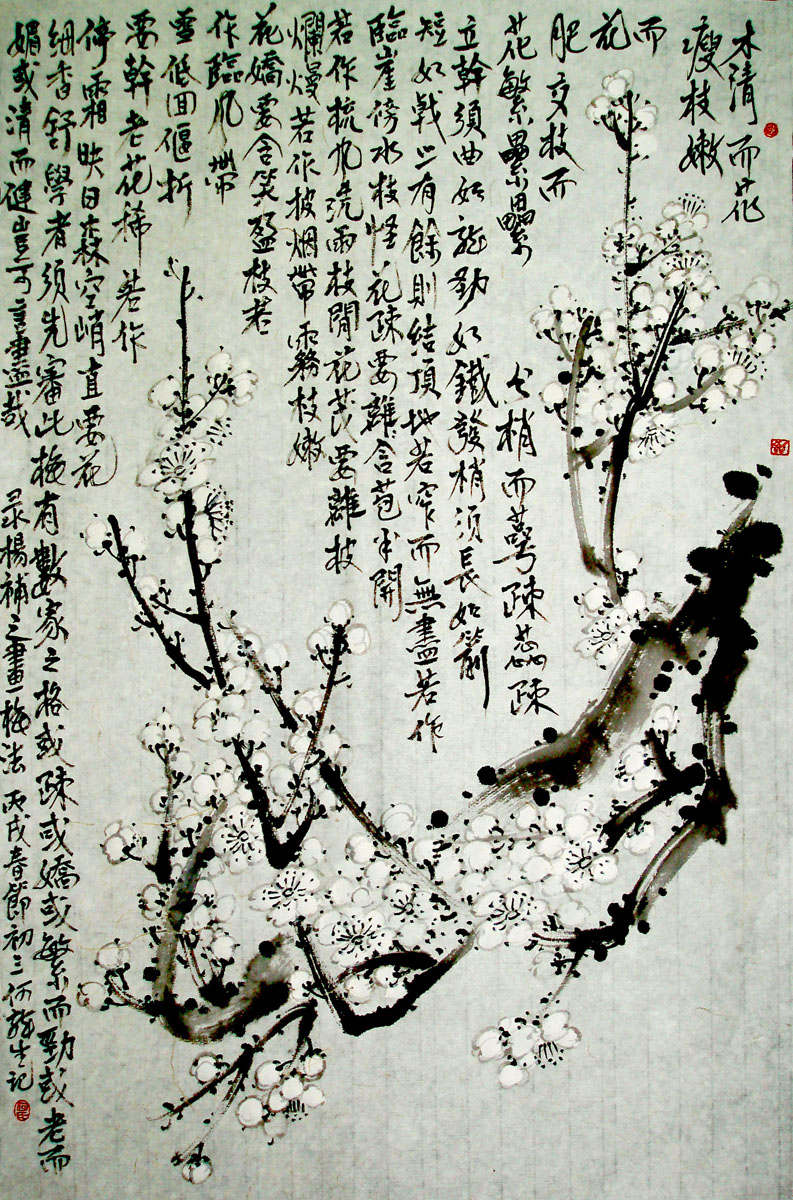 木清而花
瘦枝嫩
而
花
肥交枝而
花繁纍纍 分梢而萼疎蕊疎
立幹須曲如龍勁如鐵發梢須長如箭
短如戟上有餘則結頂地若窄而無盡若作
臨崖傍水枝怪花疎要離含苞半開
若作梳风洗雨枝閒花茂要離披
爛熳若作披烟帶霧枝嫩
花嬌要含笑盈枝若
作臨风帶
雪低回偃折
要幹老花稀若作
停霜映日森空峭直要花
細香舒學者須先審此梅有數家之格或疎或嬌或繁而勁或老而
媚或清而健豈可言盡哉 录楊補之畫梅法 丙戌春節初三何龍生記